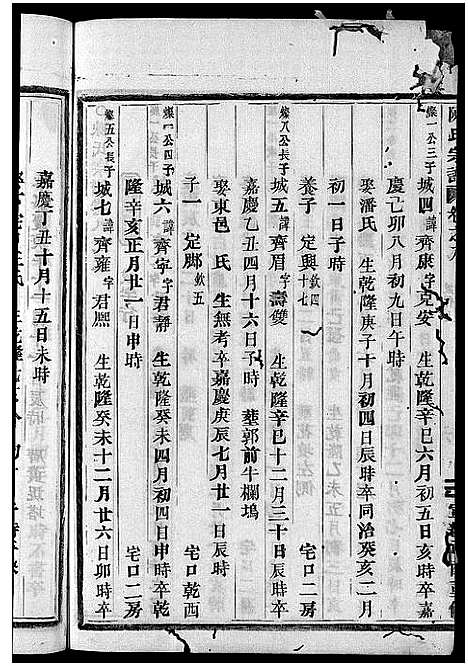 陳氏宗譜
燦一公三子 城四 諱齊康 字克安 生乾隆辛巳六月初五日亥時卒嘉
慶己卯八月初九日午時
娶潘氏 生乾隆庚子十月初四日辰時卒同治癸亥二月
初一日子時
養子 定興 欽四七十
燦八公長子 城五 諱齊眉 字壽雙 生乾隆辛巳十二月三十日辰時 宅口二房
嘉慶乙丑四月十六日子時 塟郭前牛欄塢
娶東邑 氏 生無考卒嘉慶庚辰七月廿一日辰時
子一 定脚 欽五 宅口乾西
燦一公四子 城六 諱齊寧 字君靜 生乾隆癸未四月初四日申時卒乾
隆辛亥正月廿一日申時 宅口二房
燦五公長子 城七 諱齊雍 字君熙 生乾隆癸未十二月廿六日卯時卒
嘉慶丁丑十月十五日未時